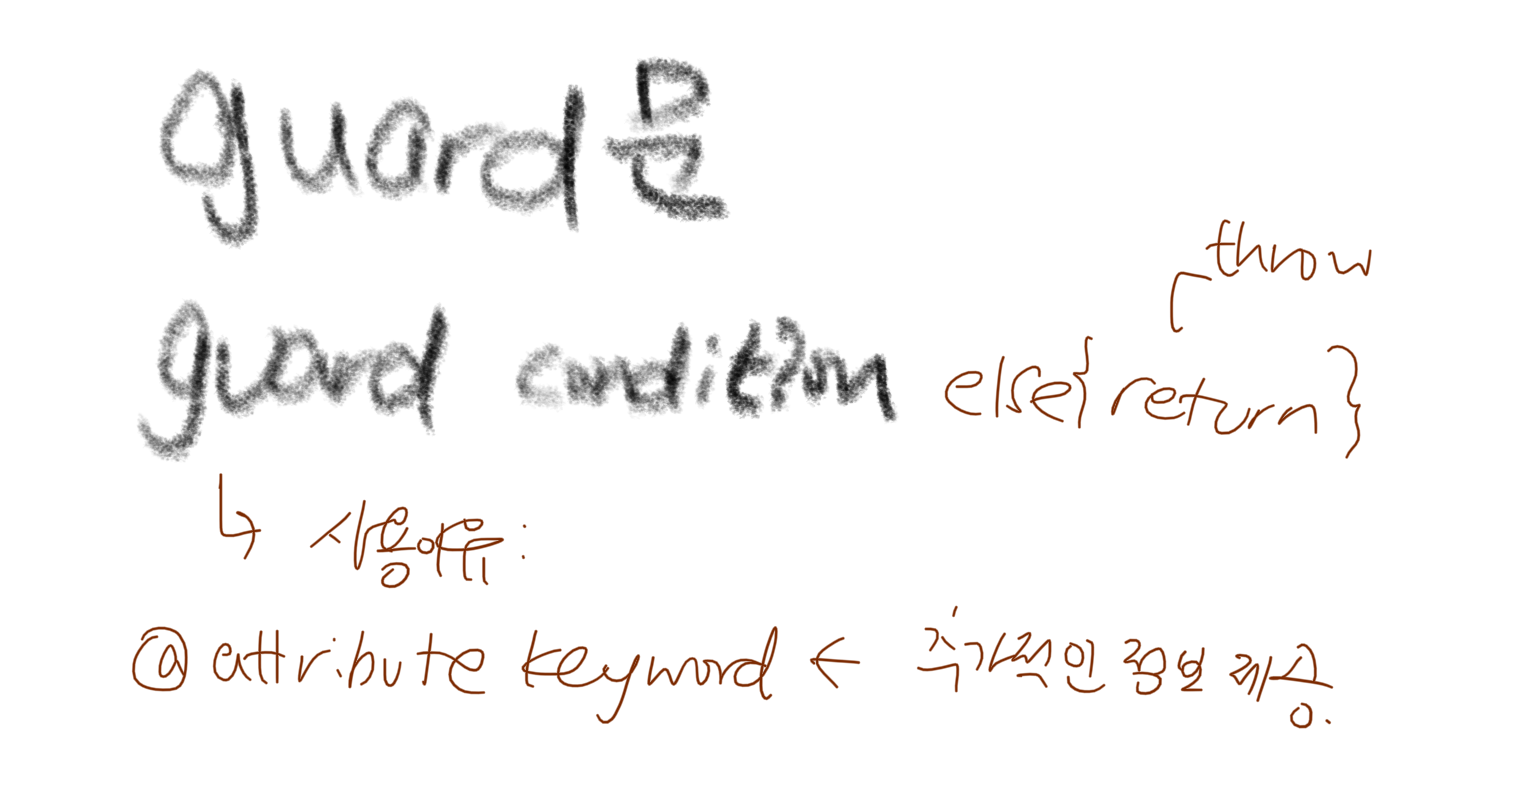 guard문
throw
guard condition else{return}
사용이유:
@attribute keyword ← 추가적인 정보 제공.